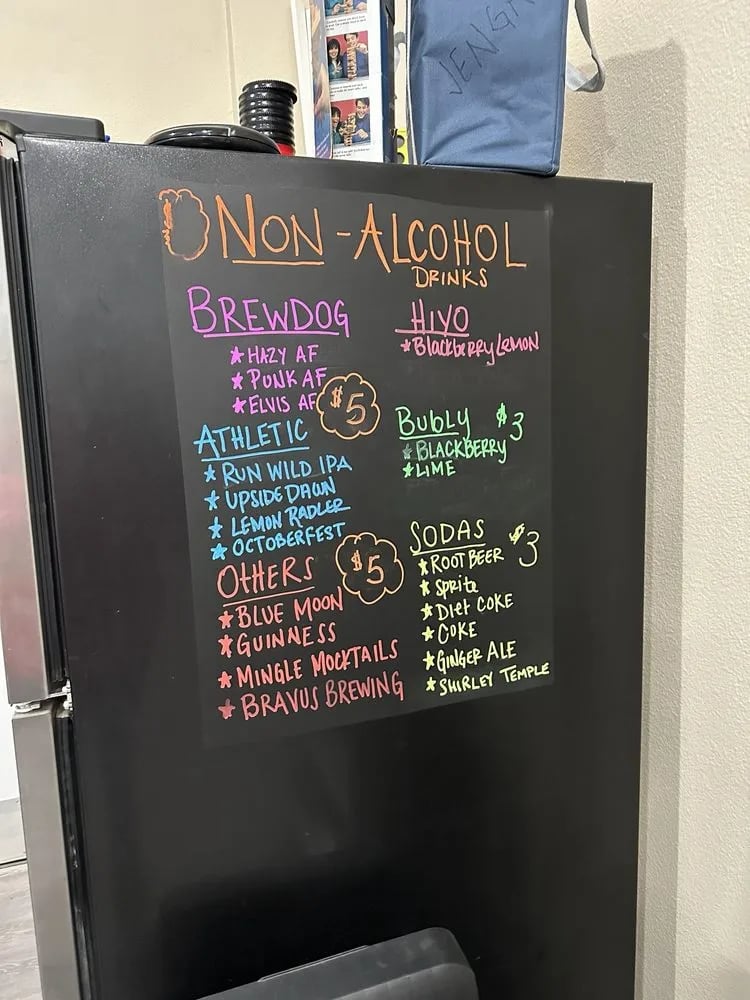 JENGA
NON-ALCOHOL
DRINKS
BREWDOG
HAZY AF
PUNK AF
ELVIS AF
$5
ATHLETIC
RUN WILD IPA
UPSIDE DAWN
LEMON RADLER
OCTOBERFEST
$5
OTHERS
BLUE MOON
GUINNESS
MINGLE MOCKTAILS
BRAVUS BREWING
HIYO
BlackbeRRy LEMON
BUbLY $3
BLACKBERRY
LIME
SODAS $3
ROOT BEER
SpRite
DIet COKE
COKE
GINGER ALE
SHIRLEY TEMPLE